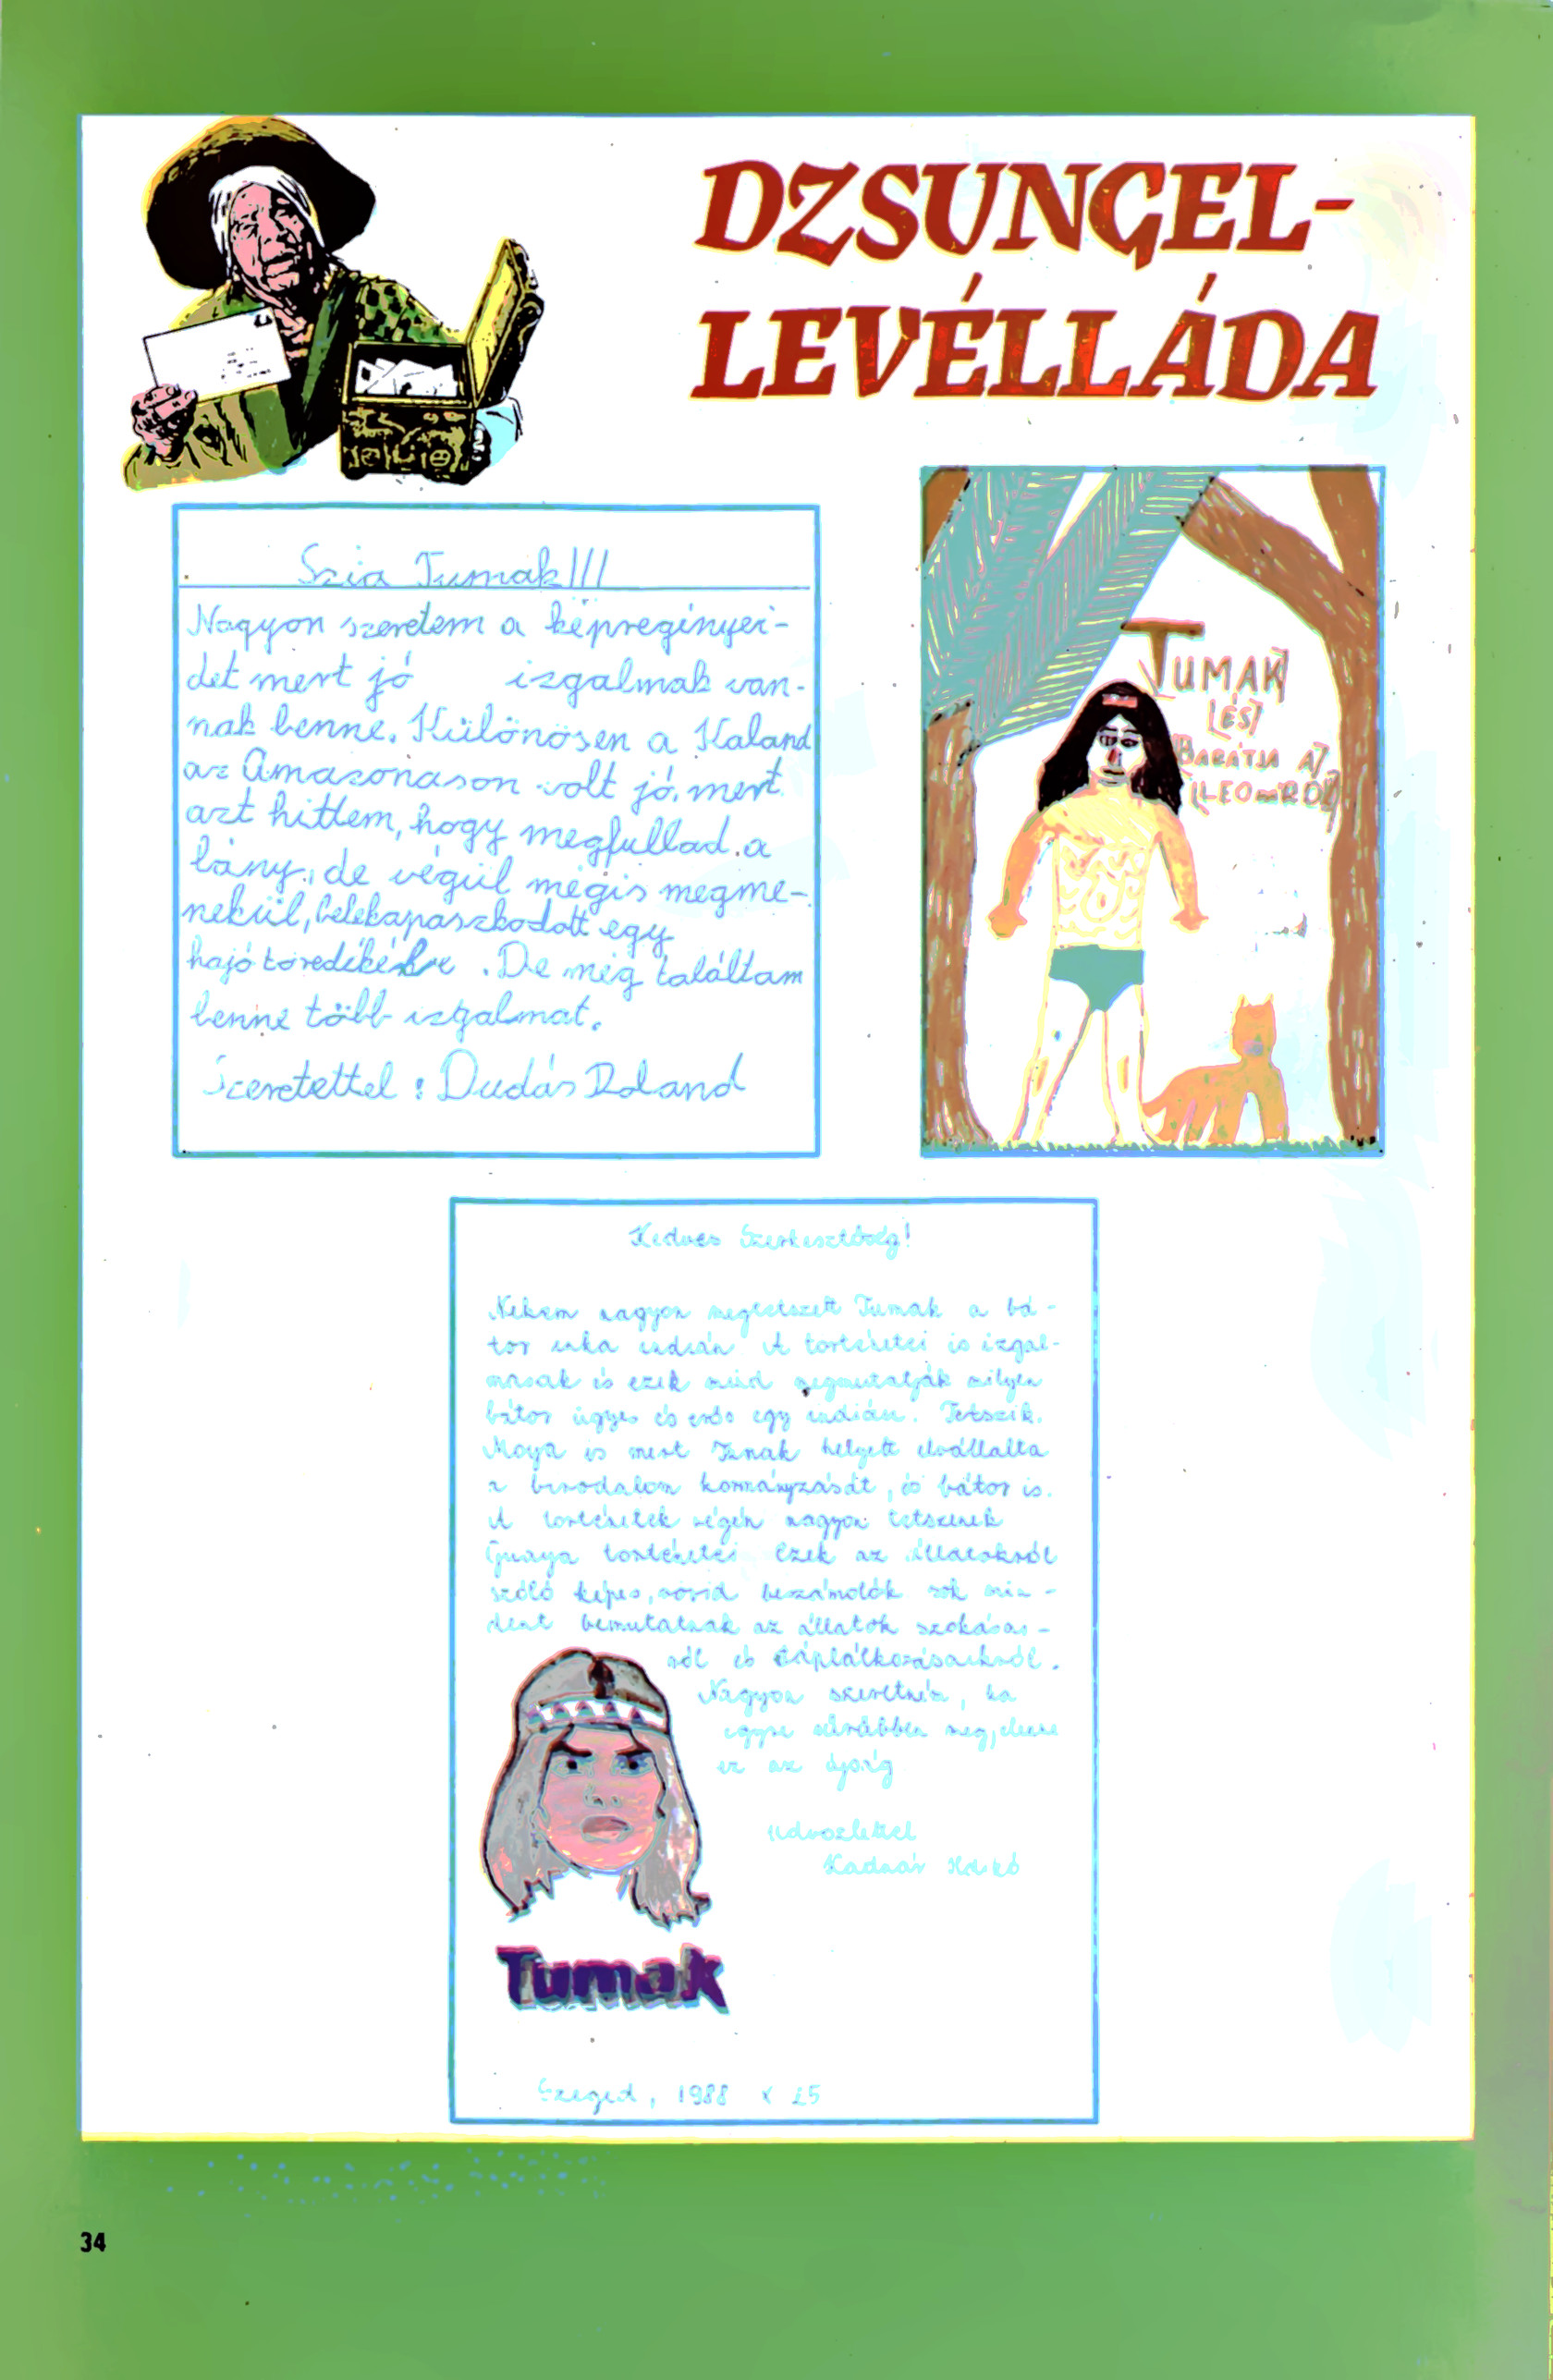 DZSUNGEL-
LEVÉLLÁDA
Szia Tumak!!!
Nagyon szeretem a képregényei-
det mert jó izgalmak van-
nak benne. Különösen a Kaland
az Amazonason volt jó, mert
azt hittem, hogy megfullad a
lány, de végül mégis megme-
nekül, belekapaszkodott egy
hajó töredékébe. De még találtam
benne több izgalmat.
Szeretettel: Dudás Roland
TUMAK
ÉS
BARÁTJA A
LEOPÁRD
Kedves Szerkesztőség!
Nekem nagyon megtetszett Tumak a bá-
tor inka indián. A történetei is izgal-
masak és ezek mind megmutatják milyen
bátor ügyes és erős egy indián. Tetszik
Moya is mert Tumak helyett elvállalta
a birodalom kormányzását, és bátor is.
A történetek végén nagyon tetszenek
Guaya történetei. Ezek az állatokról
szóló képes, rövid beszámolók sok min-
dent bemutatnak az állatok szokásai-
ról és táplálkozásaikról.
Nagyon szeretném, ha
egyre sűrűbben megjelenne
ez az újság
Üdvözlettel
Kadnár Ildikó
Tumak
Szeged, 1988 X 25
34